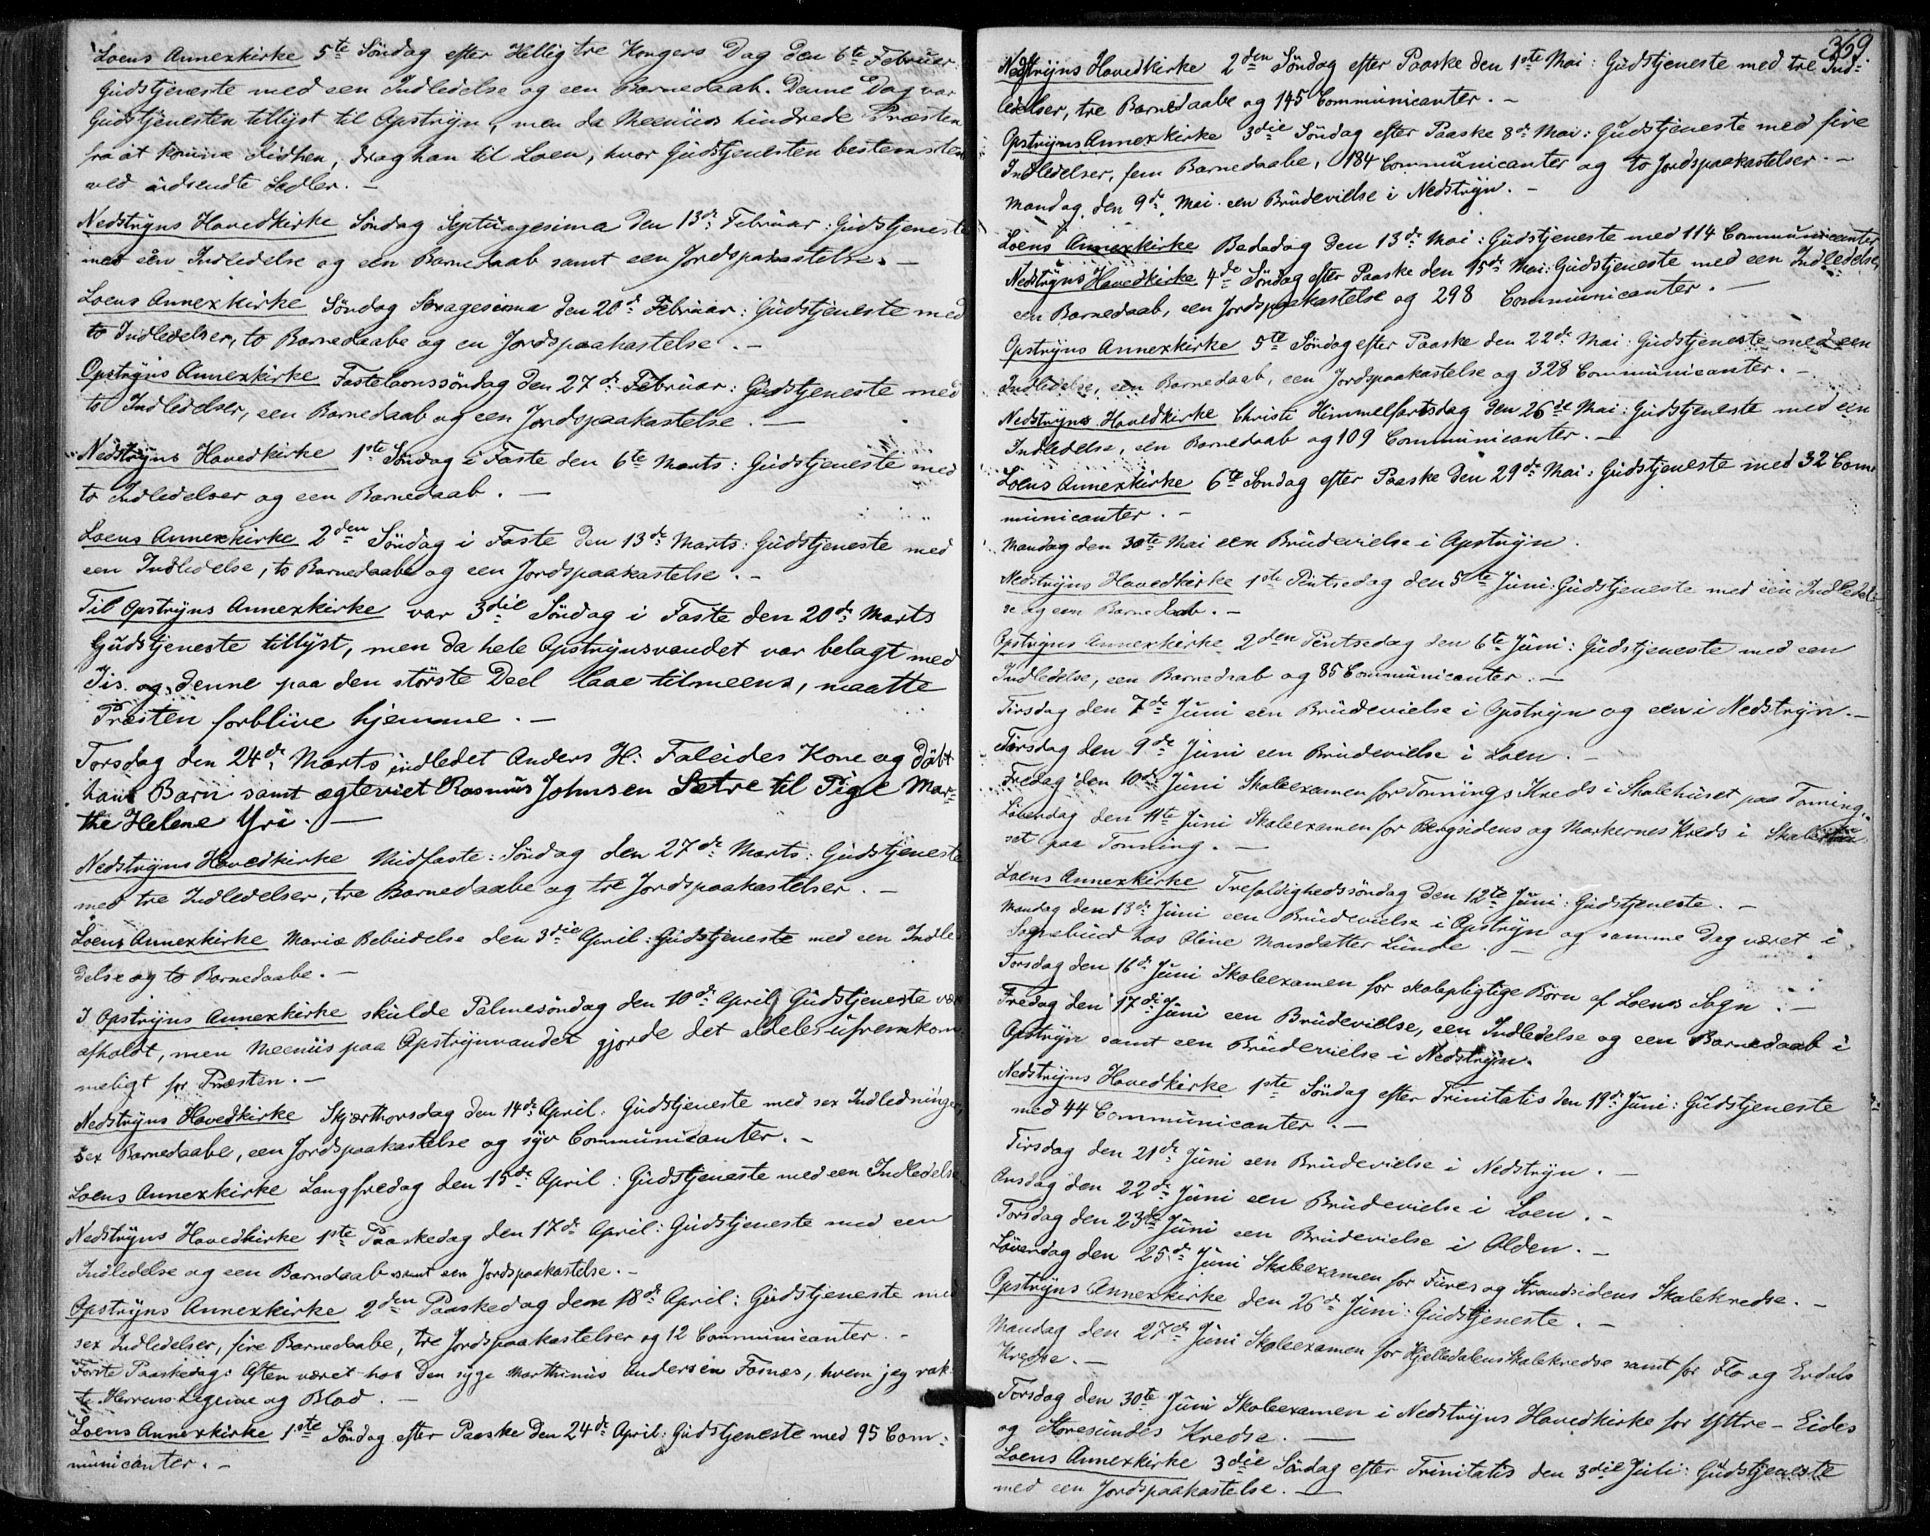 Loens Annexkirke 5te Söndag efter Hellig tre Kongers Dag den 6te Februar
Gudstjeneste med een Indledelse og een Barnedaab. Denne Dag var
Gudstjenesten tillyst til Opstryn, men da Meeniis hindrede Præsten
fra at komme didhen, drag han til Loen, hvor Gudstjenesten bestemtes
ved udsendte Sedler. –
Nedstryns Hovedkirke Söndag Septuagesima den 13de Februar: Gudstjeneste
med een Indledelse og een Barnedaab samt een Jordspaakastelse. –
Loens Annexkirke Söndag Sexagesima den 20de Februar: Gudstjeneste med
to Indledelser, to Barnedaabe og en Jordspaakastelse. –
Opstryns Annexkirke Fastelavnssöndag den 27de Februar: Gudstjeneste med
to Indledelser, een Barnedaab og een Jordspaakastelse. –
Nedstryns Hovedkirke 1ste Söndag i Faste den 6te Marts: Gudstjeneste med
to Indledelser og een Barnedaab. –
Loens Annexkirke 2den Söndag i Faste den 13de Marts: Gudstjeneste med
een Indledelse, to Barnedaabe og een Jordspaakastelse. –
Til Opstryns Annexkirke var 3die Söndag i Faste den 20de Marts
Gudstjeneste tillyst, men da hele Opstrynsvandet var belagt med
Iis og denne paa den störste Deel laae tilmeens, maatte
Præsten forblive hjemme. –
Torsdag den 24de Marts indledet Anders H: Faleides Kone og döbt
hans Barn samt ægteviet Rasmus Johnsen Sætre til Pige Mar-
the Helene Yri. –
Nedstryns Hovedkirke Midfaste: Söndag den 27de Marts: Gudstjeneste
med tre Indledelser, tre Barnedaabe og tre Jordspaakastelser. –
Loens Annexkirke Mariæ Bebudelse den 3die April: Gudstjeneste med een Indle-
delse og to Barnedaabe. –
I Opstryns Annexkirke skulde Palmesöndag den 10de April Gudstjeneste være
afholdt, men Meeniis paa Opstrynvandet gjorde det aldeles ufremkom-
meligt for Præsten. –
Nedstryns Hovedkirke Skjærthorsdag den 14de April: Gudstjeneste med sex Indledninger,
sex Barnedaabe, een Jordspaakastelse og syv Communicanter. –
Loens Annexkirke Langfredag den 15de April: Gudstjeneste med een Indledelse.
Nedstryns Hovedkirke 1ste Paaskedag den 17de April: Gudstjeneste med een
Indledelse og een Barnedaab samt een Jordspaakastelse. –
Opstryns Annexkirke 2den Paaskedag den 18de April: Gudstjeneste med
sex Indledelser, fire Barnedaabe, tre Jordspaakastelser og 12 Communicanter. –
Förste Paaskedags Aften været hos den syge Marthinus Andersen Fosnæs, hvem jeg rak-
te Herrens Legeme og Blod. –
Loens Annexkirke 1ste Söndag efter Paaske den 24de April: Gudstjeneste med 95 Com-
municanter. –
369
Nedstryns Hovedkirke 2den Söndag efter Paaske den 1ste Mai: Gudstjeneste med tre Ind-
ledelser, tre Barnedaabe og 145 Communicanter. –
Opstryns Annexkirke 3die Söndag efter Paaske 8de Mai: Gudstjeneste med fire
Indledelser, fem Barnedaabe, 184 Communicanter og to Jordspaakastelser. –
Mandag den 9de Mai een Brudevielse i Nedstryn. –
Loens Annexkirke Bededag den 13de Mai: Gudstjeneste med 114 Communicanter
Nedstryns Hovedkirke 4de Söndag efter Paaske den 15de Mai: Gudstjeneste med een Indledelse,
een Barnedaab, een Jordspaakastelse og 298 Communicanter. –
Opstryns Annexkirke 5te Söndag efter Paaske den 22de Mai: Gudstjeneste med een
Indledelse, een Barnedaab, een Jordspaakastelse og 328 Communicanter. –
Nedstryns Hovedkirke Christi Himmelfartsdag den 26de Mai: Gudstjeneste med een
Indledelse, een Barnedaab og 109 Communicanter. –
Loens Annexkirke 6te Söndag efter Paaske den 29de Mai: Gudstjeneste med 32 Com-
municanter. –
Mandag den 30te Mai een Brudevielse i Opstryn.
Nedstryns Hovedkirke 1ste Pintsedag den 5te Juni: Gudstjeneste med een Indledel-
se og een Barnedaab. –
Opstryns Annexkirke 2den Pintsedag den 6te Juni: Gudstjeneste med een
Indledelse, een Barnedaab og 85 Communicanter. –
Tirsdag den 7de Juni een Brudevielse i Opstryn og een i Nedstryn. –
Torsdag den 9de Juni een Brudevielse i Loen. –
Fredag den 10de Juni Skoleexamen for Tonnings Kreds i Skolehuset paa Tonning.
Löverdag den 11te Juni Skoleexamen for Bergsidens og Markernes Kreds i Skolehu-
set paa Tonning. –
Loens Annexkirke Trefoldighedssöndag den 12te Juni: Gudstjeneste. –
Mandag den 13de Juni een Brudevielse i Opstryn og samme Dag været i
Sognebud hos Oline Monsdatter Lunde. –
Torsdag den 16de Juni Skoleexamen for skolepligtige Börn af Loens Sogn. –
Fredag den 17de Juni een Brudevielse, een Indledelse og een Barnedaab i
Opstryn samt een Brudevielse i Nedstryn.
Nedstryns Hovedkirke 1ste Söndag efter Trinitatis den 19de Juni: Gudstjeneste
med 44 Communicanter. –
Tirsdag den 21de Juni een Brudevielse i Nedstryn. –
Onsdag den 22de Juni een Brudevielse i Loen. –
Torsdag den 23de Juni een Brudevielse i Olden. –
Löverdag den 25de Juni Skoleexamen for Fures og Strandsidens Skolekredse. –
Opstryns Annexkirke den 26de Juni: Gudstjeneste. –
Mandag den 27de Juni Skoleexamen for Hjelledalens Skolekredse samt for Flo og Erdals
Kredse. –
Torsdag den 30te Juni Skoleexamen i Nedstryns Hovedkirke for Yttre-Eides
og Storesundes Kredse. –
Loens Annexkirke 3die Söndag efter Trinitatis den 3die Juli: Gudstjeneste
med een Jordspaakastelse. –